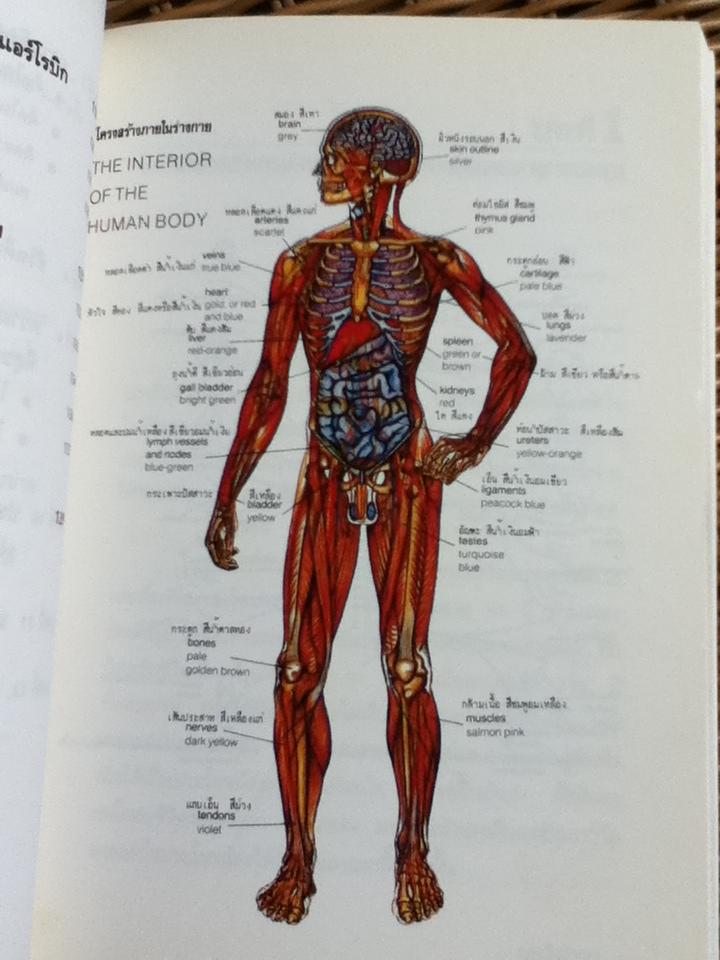 แอร์โรบิก
โครงสร้างภายในร่างกาย
THE INTERIOR
OF THE
HUMAN BODY
สมอง สีเทา
brain
grey
ผิวหนังรอบนอก สีเงิน
skin outline
silver
หลอดเลือดแดง สีแดงแก่
arteries
scarlet
ต่อมไธมัส สีชมพู
thymus gland
pink
veins
หลอดเลือดดำ สีน้ำเงินแก่
true blue
กระดูกอ่อน สีฟ้า
cartilage
pale blue
heart
หัวใจ สีทอง สีแดงหรือสีน้ำเงิน
gold, or red
and blue
ปอด สีม่วง
lungs
lavender
ตับ สีแดงส้ม
liver
red-orange
spleen
green or
brown
ม้าม สีเขียว หรือสีน้ำตาล
ถุงน้ำดี สีเขียวอ่อน
gall bladder
bright green
kidneys
red
ไต สีแดง
หลอดและปมน้ำเหลือง สีเขียวอมน้ำเงิน
lymph vessels
and nodes
blue-green
ท่อปัสสาวะ สีเหลืองส้ม
ureters
yellow-orange
กระเพาะปัสสาวะ สีเหลือง
bladder
yellow
เอ็น สีน้ำเงินอมเขียว
ligaments
peacock blue
อัณฑะ สีน้ำเงินอมฟ้า
testes
turquoise
blue
กระดูก สีน้ำตาลทอง
bones
pale
golden brown
เส้นประสาท สีเหลืองแก่
nerves
dark yellow
กล้ามเนื้อ สีชมพูอมเหลือง
muscles
salmon pink
แถบเอ็น สีม่วง
tendons
violet